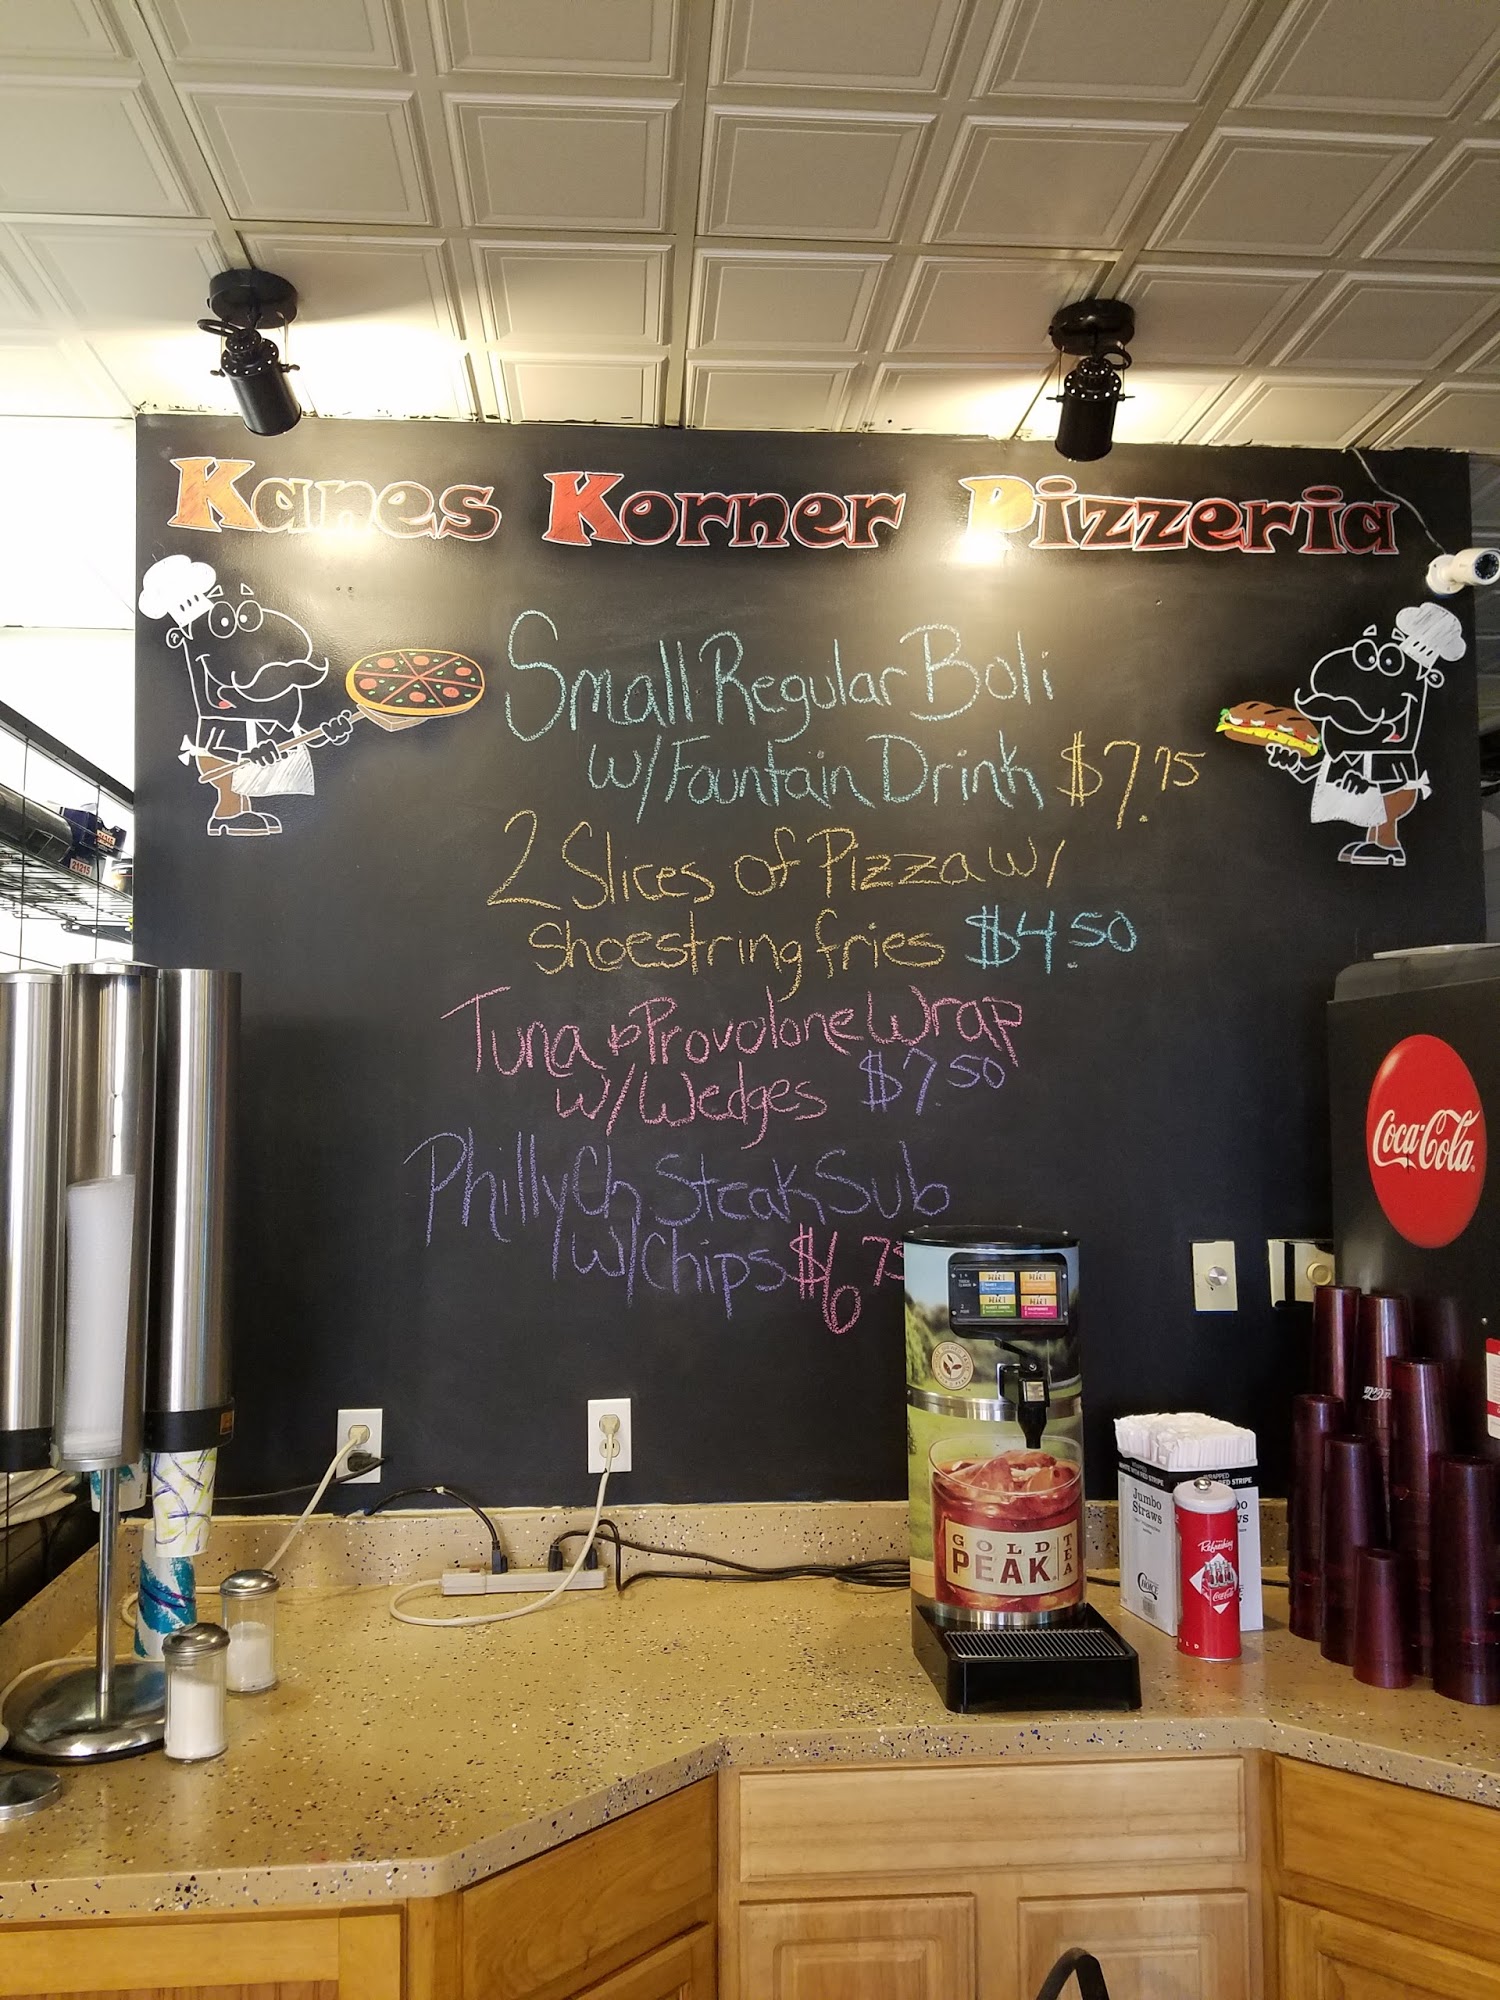 Kanes Korner Pizzeria
Small Regular Boli
w/Fountain Drink $7.75
2 Slices of Pizza w/
shoestring fries $4.50
Tuna & Provolone Wrap
w/Wedges $7.50
Philly Ch Steak Sub
w/chips $6.75
Coca-Cola
GOLD
PEAK
TEA
Jumbo
Straws
Refreshing
Coca-Cola
21215